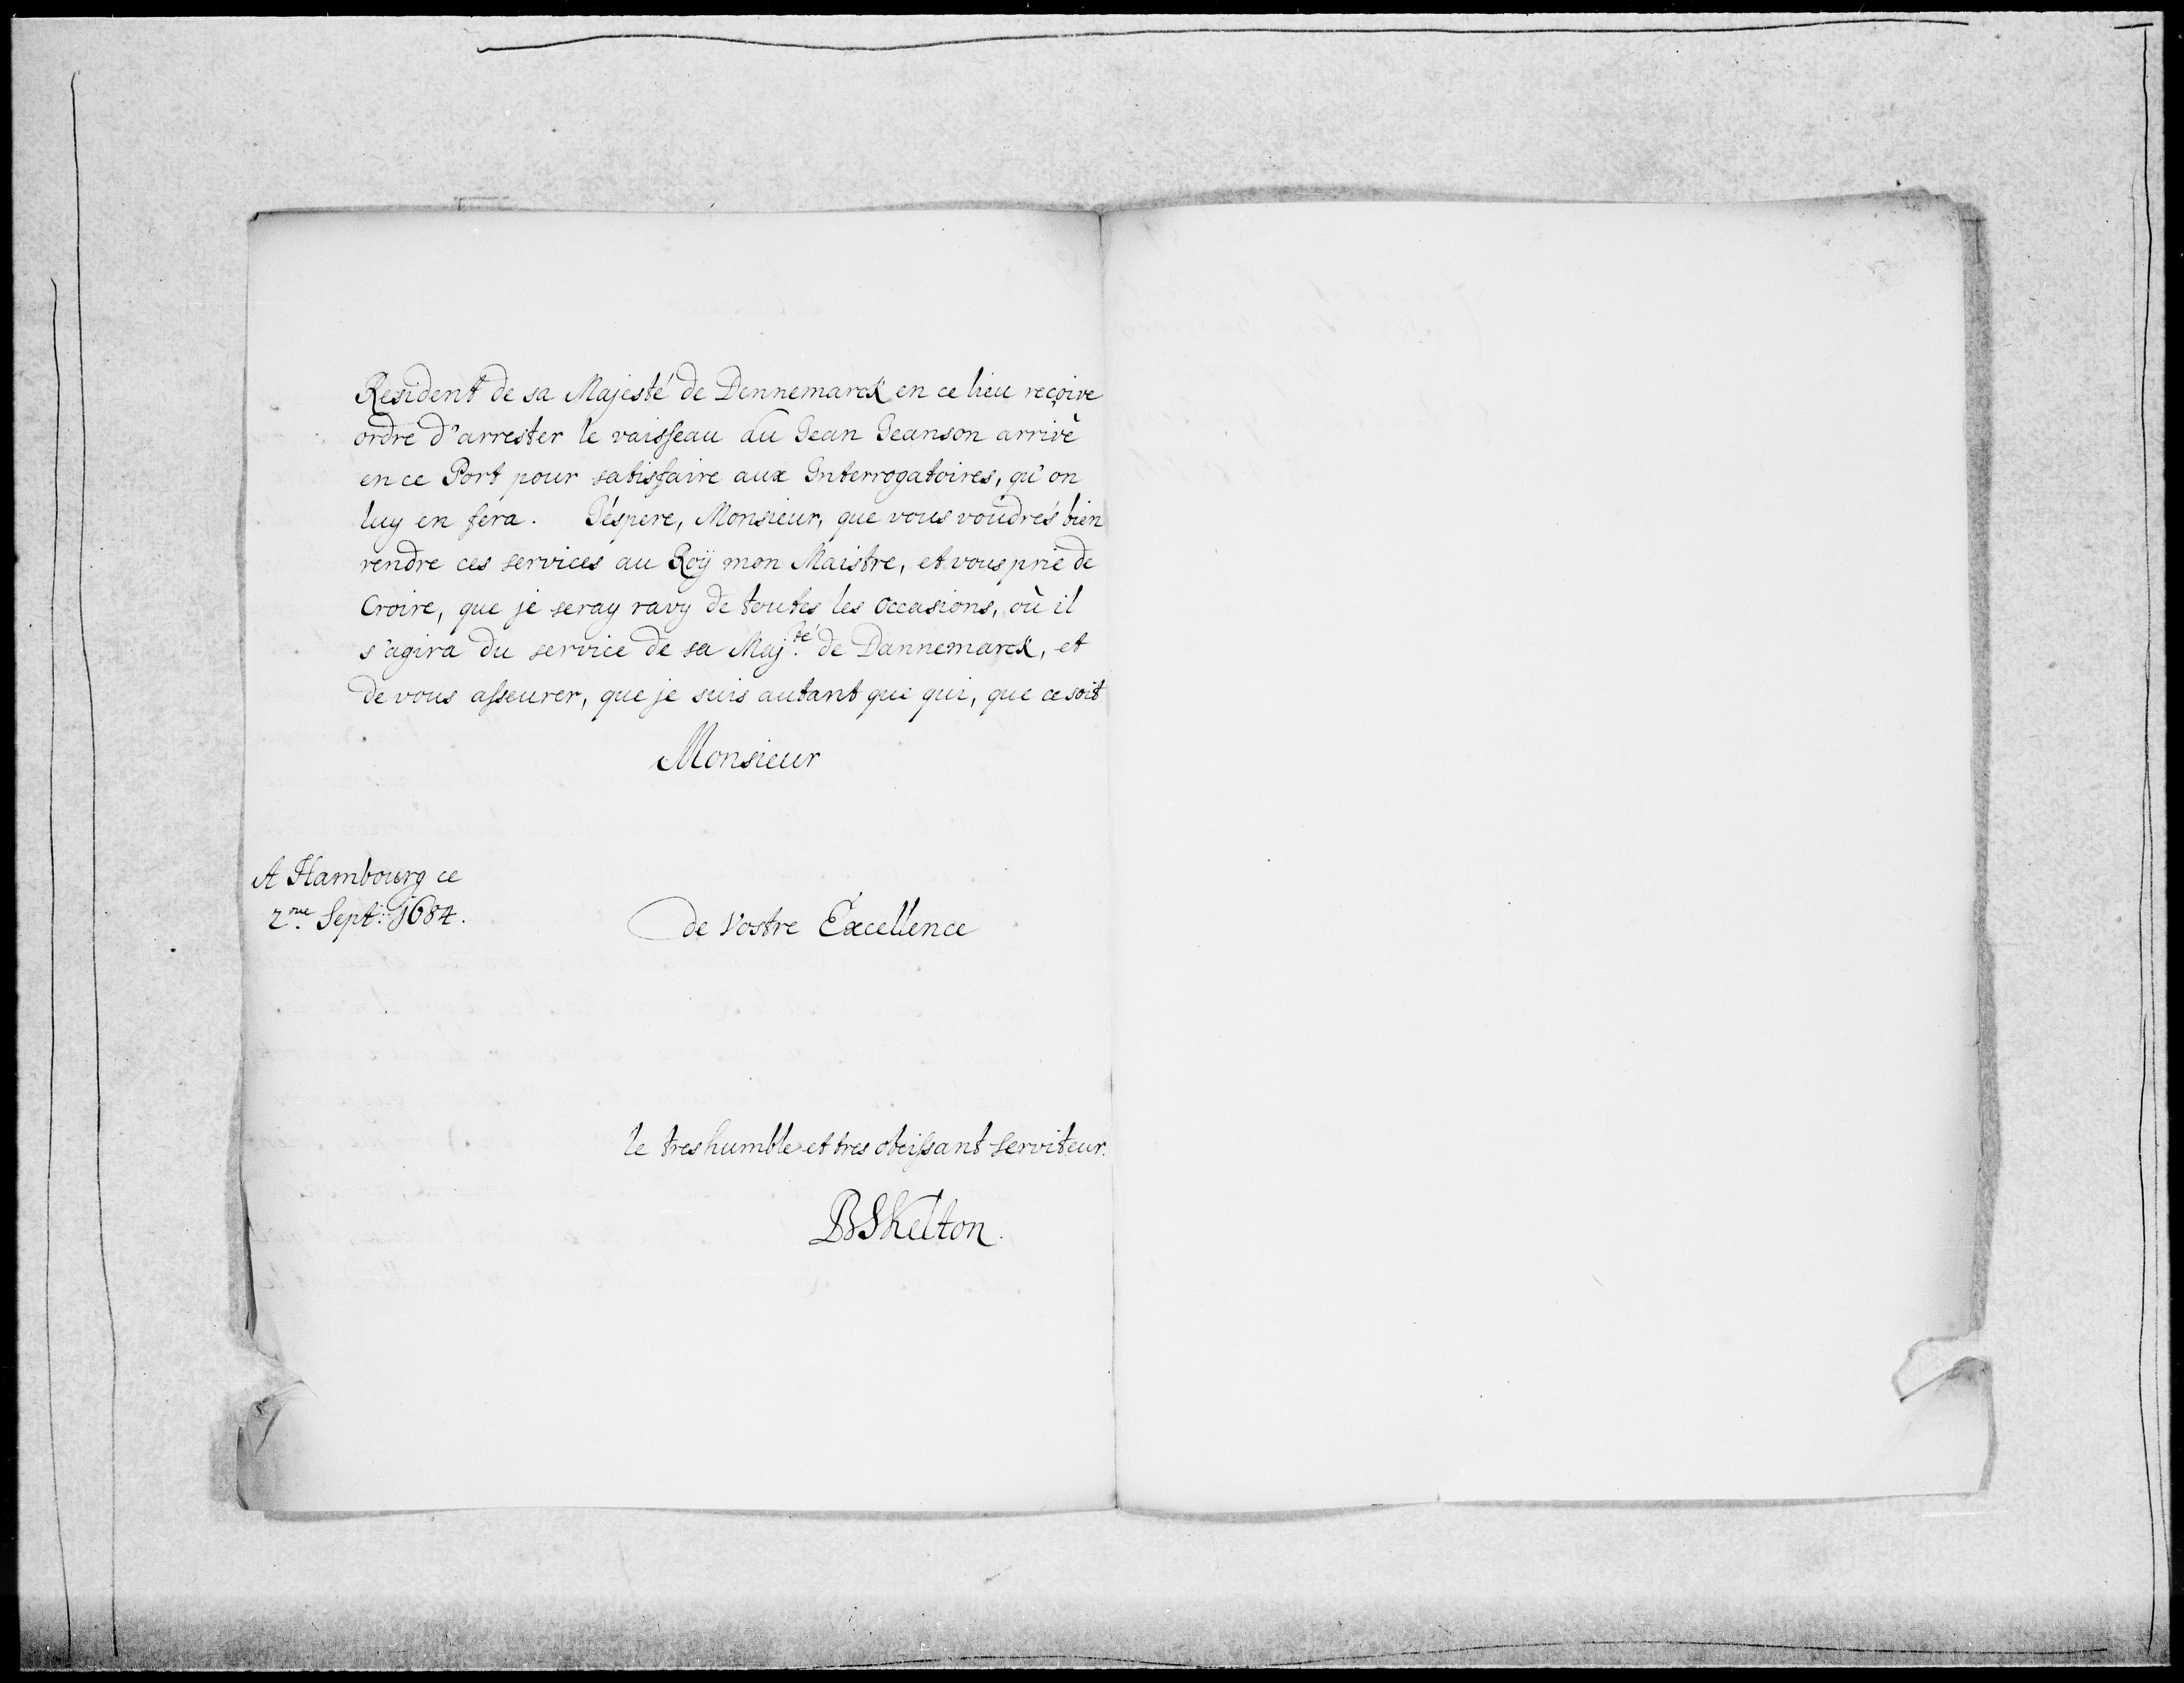 Resident de sa Majesté de Dennemarck en ce lieu reçoive
ordre d'arrester le vaisseau du Jean Jeanson arrivè
en ce Port pour satisfaire aux Interrogatoires, qu'on
luy en fera. J'éspere, Monsieur, que vous voudrés bien
rendre ces services au Roÿ mon Maistre, et vous prie de
Croire, que je seray ravy de toutes les occasions, où il
s'agira du service de sa Maj.té de Dannemarck, et
de vous asseurer, que je suis autant que qui, que ce soit
Monsieur
A Hambourg ce
2.me Sept: 1684.
de Vostre Excellence
le tres humble et tres obeissant serviteur.
BSkelton.